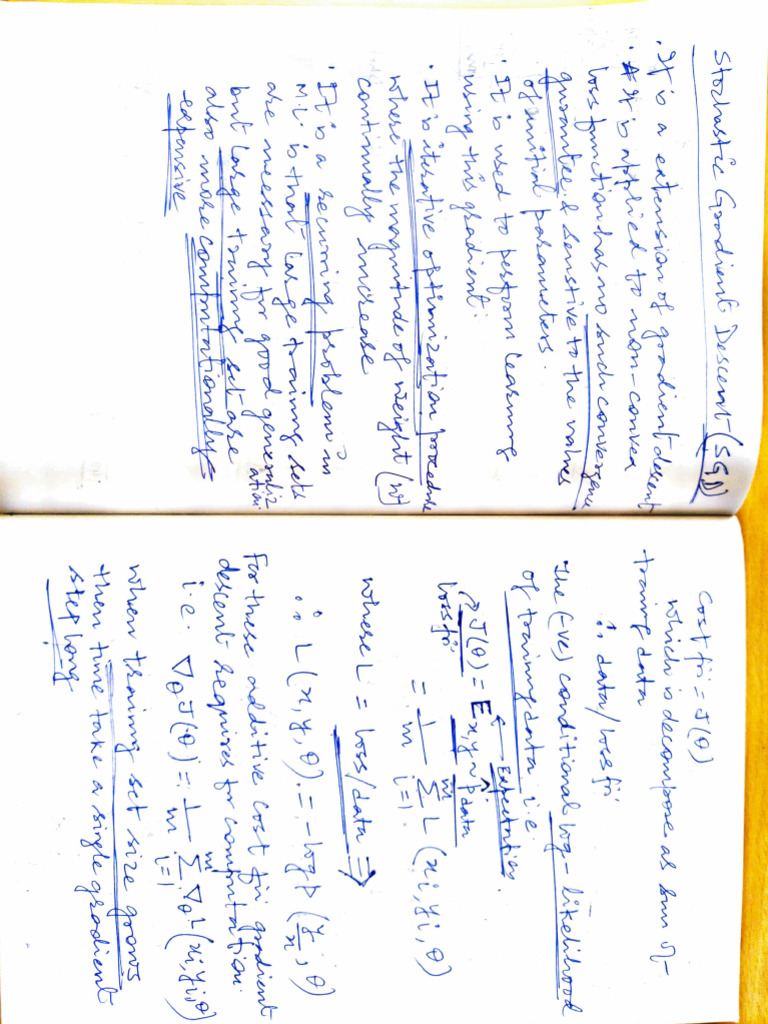 Stochastic Gradient Descent (SGD)
• It is a extension of gradient descent
• It is applied to non-convex
loss function has no such convergence
guarantee & senstive to the values
of initial parameters.
• It is used to perform learning
using this gradient.
• It is iterative optimization procedure
where the magnitude of weight (w)
continually increase
• It is a recurring problem in
M.L. is that large training sets
are necessary for good generaliz
ation
but large training set are
also more computationally-
extensive
Cost fn = J(θ)
which is decompose as sum of
traing data
∴ data/loss fn
The (-ve) conditional log-likelihood
of training data i.e.
Expectation
J(θ) = E x,y~p̂ data
loss fn
= 1/m Σ i=1 m L(xi, yi, θ)
where L = loss/data ⇒
∴ L(x, y, θ) = -log P(y/x; θ)
For these additive cost fn gradient
descent requires for computation
i.e. ∇θ J(θ) = 1/m Σ i=1 m ∇θ L(xi, yi, θ)
when traing set size grows
then time take a single gradient
step long